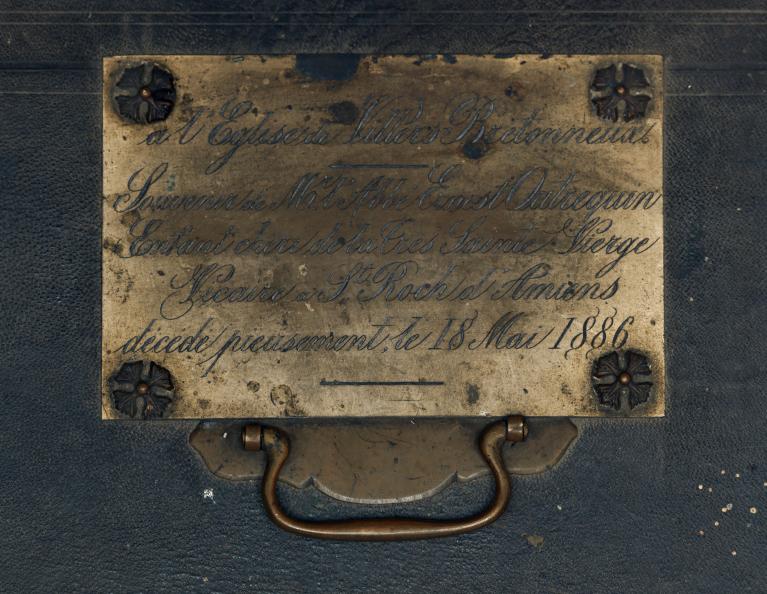 à l'Eglise de Villers Bretonneux
Souvenir de Mr l'Abbé Ernest Outrequin
Enfant chéri de la Très Sainte Vierge
Vicaire à St Roch d'Amiens
décédé pieusement, le 18 Mai 1886